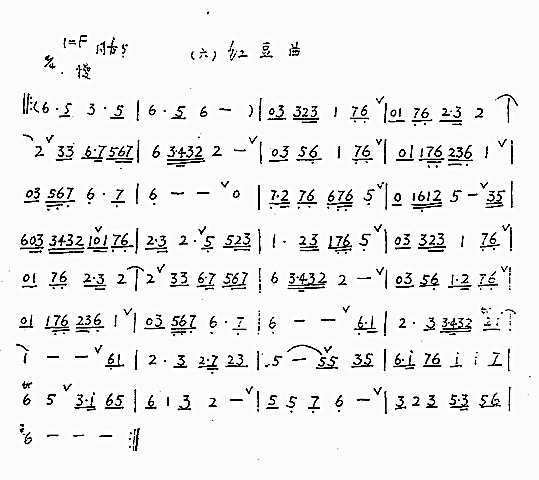 1=F
4/4 · 慢 (六) 红豆曲
‖:(6·5 3·5 | 6·5 6 — ) | 03 323 1 76 ˅| 01 76 2·3 2 |
2 ˅ 33 6·7 567 | 6 3·432 2 — ˅| 03 56 1 76 ˅| 01 176 236 1 ˅|
03 567 6·7 | 6 — — ˅ 0 | 7·2 76 676 5 ˅| 0 1612 5 — ˅ 35 |
603 3432 101 76 | 2·3 2·˅5 523 | 1·23 176 5 ˅| 03 323 1 76 ˅|
01 76 2·3 2 | 2 ˅ 33 6·7 567 | 6 3·432 2 — ˅| 03 56 1·2 76 ˅|
01 176 236 1 ˅| 03 567 6·7 | 6 — — ˅ 6·1 | 2·3 3432 2 i |
i — — ˅ 61 | 2·3 2·7 23 | 5 — ˅ 55 35 | 6·i 76 i i 7 |
tr 6 5 ˅ 3·i 65 | 6 1 3 2 — ˅| 5 5 7 6 — ˅| 3 2 3 5·3 56 |
6 — — — :‖